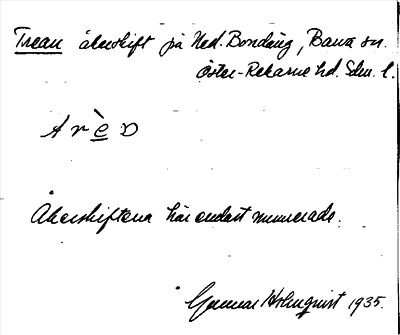 Trean åkerskift på Ned. Bondäng, Barva sn.
Öster-Rekarne hd. Sdm. l.
Åkerskiftena här endast numrerade.
Gunnar Holmquist 1935.